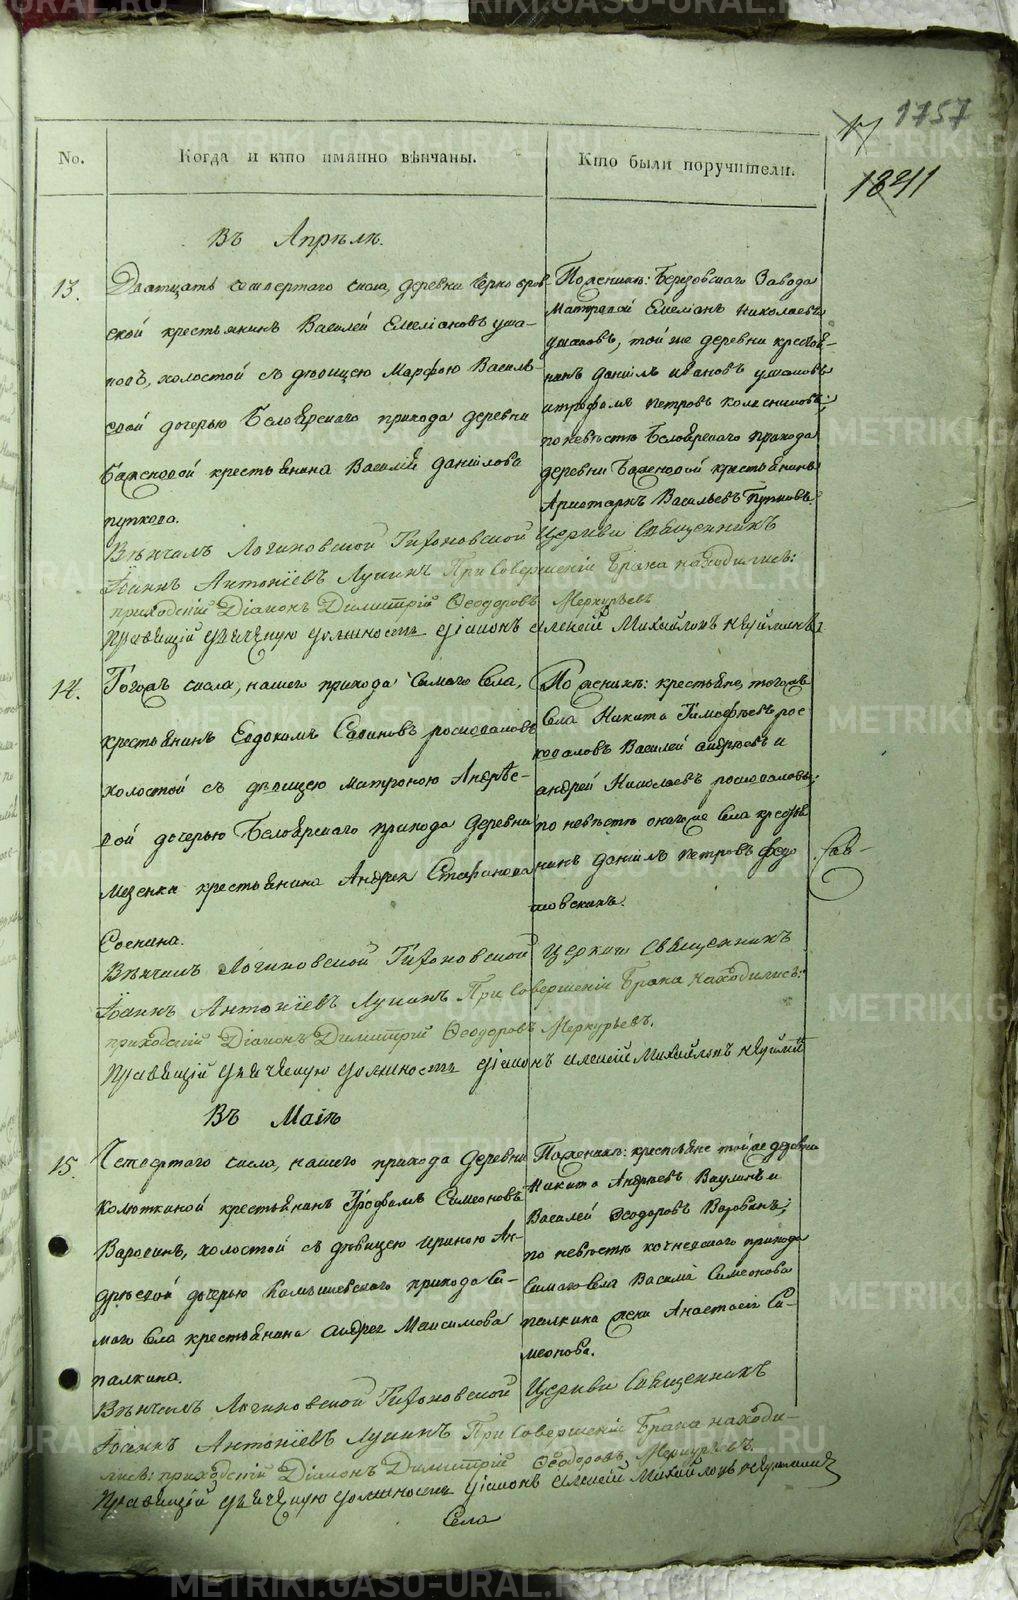 17 1757
1841
No.
Когда и кто имянно вѣнчаны.
Кто были поручители.
Въ Апрѣлѣ.
13.
Дватцать четвертаго числа, деревни Черноб­ров-
ской крестьянинъ Василей Емеліановъ уша-
ковъ, холостой съ дѣвицею Марфою Василь-
евой дочерью Белоярскаго прихода деревни
Баженовой крестьянина Василія данилова
пупкова.
По женихѣ: Березовскаго Завода
Емеліанъ Николаевъ
ушаковъ, той же деревни крестья-
нинъ данилъ ивановъ ушаковъ
итрофимъ петровъ колесниковъ;
по невѣстѣ Белоярскаго прихода
деревни Баженовой крестьянинъ
Аристархъ Васильевъ Пупковъ.
Вѣнчалъ Логиновской Тихоновской Церкви Священникъ
Іоаннъ Антоніевъ Лукинъ При Совершеніи Брака находились:
приходскій Діаконъ Димитрій Ѳеодоровъ Меркурьевъ
Правящій должность діаконъ алексей Михайловъ
14.
Тогожъ числа, нашего прихода Самого Села,
крестьянинъ Евдокимъ Савиновъ росковаловъ
холостой съ дѣвицею матроною Андрѣе-
вой дочерью Белоярскаго прихода деревни
Мезенки крестьянина Андрея Стафанова
Соснина.
По женихѣ: крестьяне, тогожъ
Села Никита Тимофѣевъ рос
коваловъ Василей андреевъ и
андрей Николаевъ росковаловы;
по невѣстѣ онагоже села крестья
нинъ данилъ петровъ федо
шовскихъ.
Вѣнчалъ Логиновской Тихоновской Церкви Священникъ
Іоаннъ Антоніевъ Лукинъ При Совершеніи Брака находились:
приходскій Діаконъ Димитрій Ѳеодоровъ Меркурьевъ.
Правящій должность діаконъ алексей Михайловъ
Въ Маіѣ
15.
Четвертаго числа, нашего прихода деревни
Колюткиной крестьянинъ Симеоновъ
холостой съ дѣвицею Ириною Ан-
дрѣевой дочерью Камышевскаго прихода Са-
маго Села крестьянина андрея Максимова
палкина.
По женихѣ: крестьяне тойже деревни
Никита Андреевъ Ваулинъ и
Василей Ѳеодоровъ
по невѣстѣ кочневскаго прихода
Самаго Села Василія Симеонова
палкина жена Анастасія Си-
меонова.
Вѣнчалъ Логиновской Тихоновской Церкви Священникъ
Іоаннъ Антоніевъ Лукинъ При Совершеніи Брака находи-
лись: приходскій Діаконъ Димитрій Ѳеодоровъ Меркурьевъ
Правящій должность діаконъ алексей Михайловъ
Села
METRIKI.GASO-URAL.RU